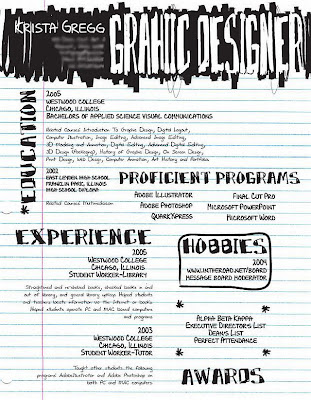 Krista Gregg
GRAHIC DESIGNER
*EDUCATION
2005
Westwood College
Chicago, Illinois
Bachelors of Applied Science Visual Communications
Related Courses: Introduction To Graphic Design, Digital Layout,
Computer Illustration, Image Editing, Advanced Image Editing,
3D Modeling and Animation, Digital Editing, Advanced Digital Editing,
3D Design (Packaging), History of Graphic Design, On Screen Design,
Print Design, Web Design, Computer Animation, Art History and Portfolio
2002
East Leyden High School
Franklin Park, Illinois
High School Diploma
Related Courses:
PROFICIENT PROGRAMS
Adobe Illustrator
Adobe Photoshop
QuarkXpress
Final Cut Pro
Microsoft PowerPoint
Microsoft Word
EXPERIENCE
2005
Westwood College
Chicago, Illinois
Student Worker-Library
Straightened and reshelved books, checked books in and
out of library, and general library upkeep. Helped students
and teachers locate information via the Internet or books.
Helped students operate PC and MAC based computers
and programs.
2003
Westwood College
Chicago, Illinois
Student Worker-Tutor
Taught other students the following
programs: Adobe Illustrator and Adobe Photoshop on
both PC and MAC computers
HOBBIES
2004
www.intheroad.net/board
Message Board Moderator
* * *
Alpha Beta Kappa
Executive Directors List
Deans List
Perfect Attendance
AWARDS